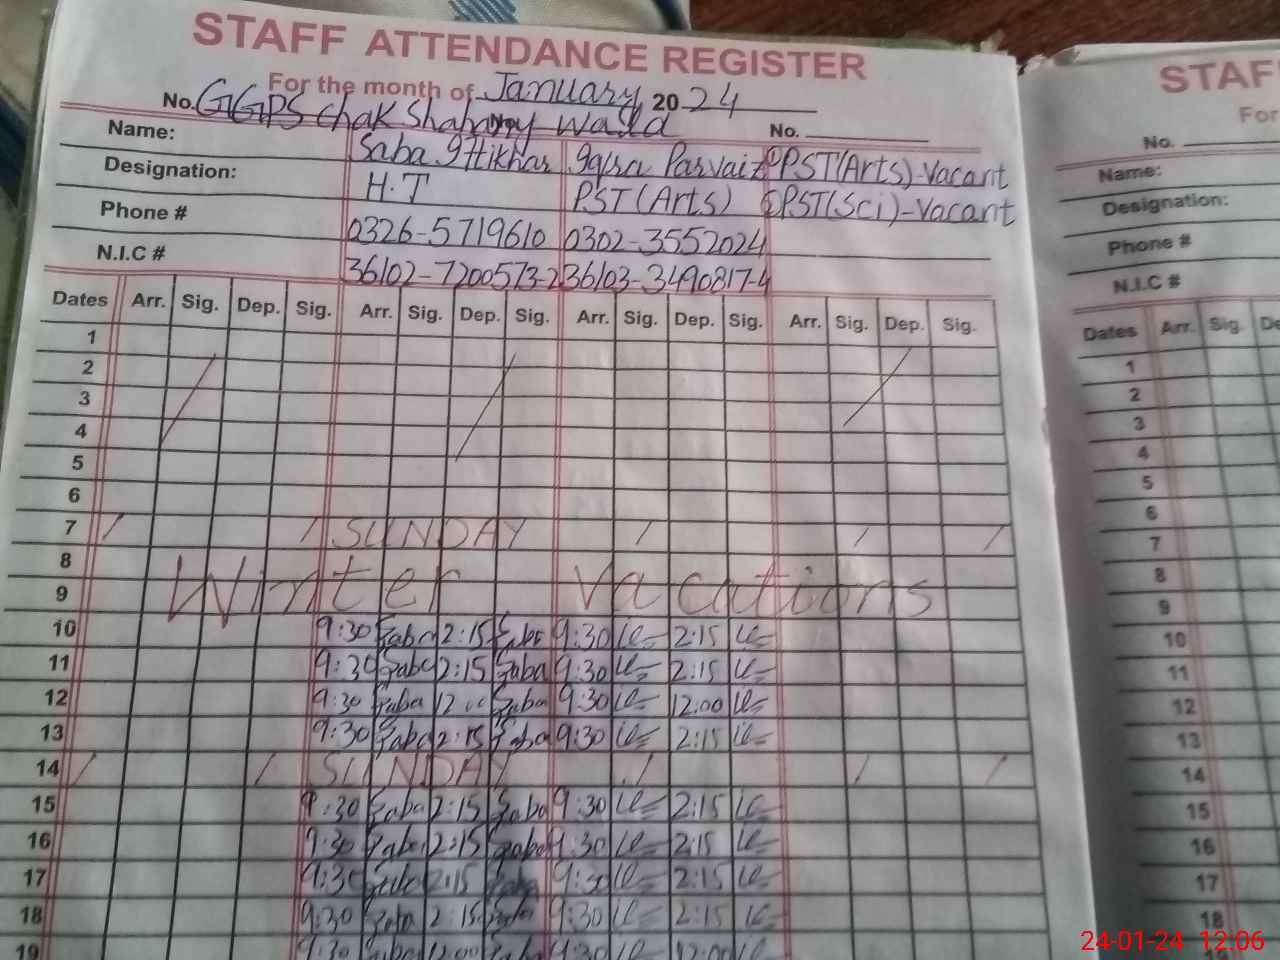 STAFF ATTENDANCE REGISTER
For the month of January 2024
No. GGPS Chak Shahany Wala No.
Name: Saba Iftikhar Iqra Parvaiz ①PST(Arts)-Vacant
Designation: H.T PST(Arts) ②PST(Sci)-Vacant
Phone # 0326-5719610 0302-3552024
N.I.C # 36102-7200573-2 36103-3490817-4
Dates Arr. Sig. Dep. Sig. Arr. Sig. Dep. Sig. Arr. Sig. Dep. Sig. Arr. Sig. Dep. Sig.
1
2
3
4
5
6
7 SUNDAY
8 Winter Vacations
9
10 9:30 Saba 2:15 Saba 9:30 2:15
11 9:30 Saba 2:15 Saba 9:30 2:15
12 9:30 Saba 12:00 Saba 9:30 12:00
13 9:30 Saba 2:15 Saba 9:30 2:15
14 SUNDAY
15 9:30 Saba 2:15 Saba 9:30 2:15
16 9:30 Saba 2:15 Saba 9:30 2:15
17 9:30 Saba 2:15 Saba 9:30 2:15
18 9:30 Saba 2:15 Saba 9:30 2:15
19 9:30 Saba 12:00 Saba 9:30 12:00
STAF
For
No.
Name:
Designation:
Phone #
N.I.C #
Dates Arr. Sig. De
1
2
3
4
5
6
7
8
9
10
11
12
13
14
15
16
17
18
24-01-24 12:06